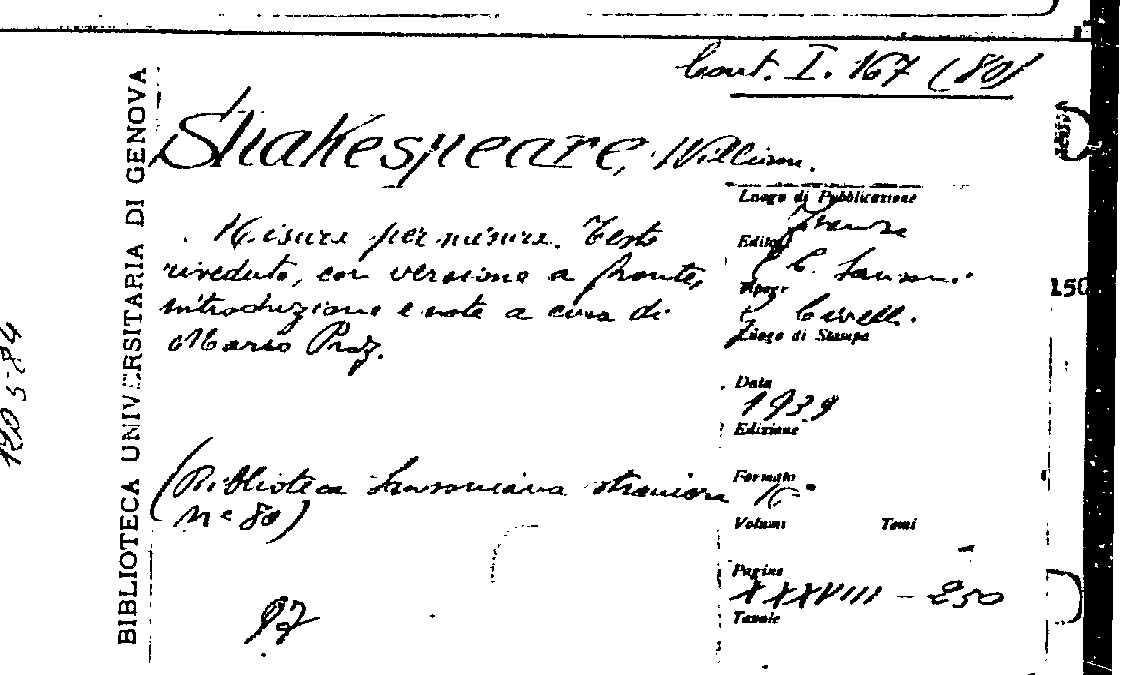 Cont. I. 167 (80)
BIBLIOTECA UNIVERSITARIA DI GENOVA
Shakespeare, William.
Misura per misura. Testo
riveduto, con versione a fronte,
introduzione e note a cura di
Mario Praz.
(Biblioteca Sansoniana straniera
n° 80)
Luogo di Pubblicazione
Firenze
Editore
G. C. Sansoni.
Tipogr.
G. Civelli.
Luogo di Stampa
Data
1939
Edizione
Formato 16°
Volumi Tomi
Pagine
XXXVIII - 250
Tavole
150